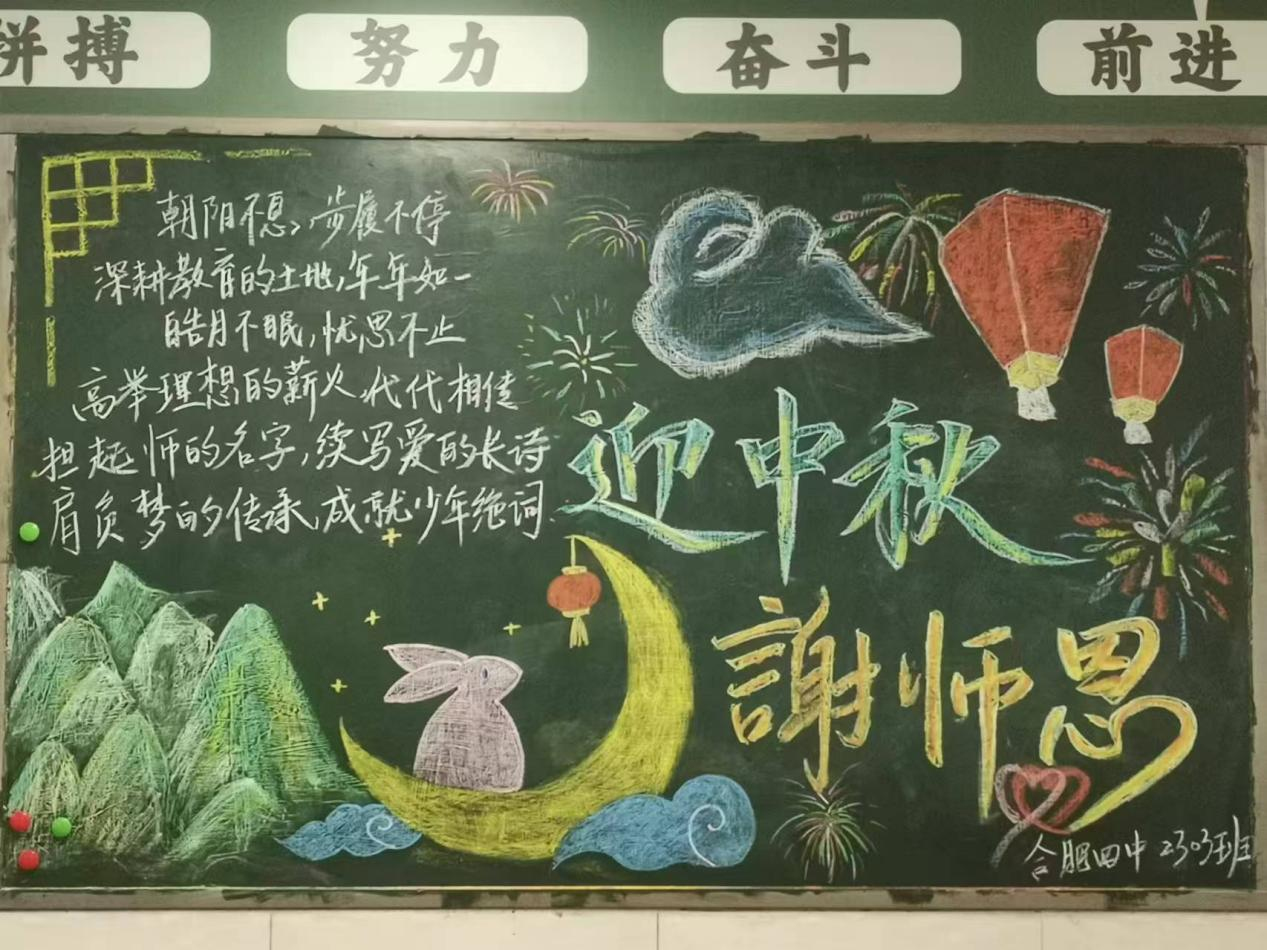 拼搏 努力 奋斗 前进
朝阳不息,步履不停
深耕教育的土地,年年如一
皓月不眠,忧思不止
高举理想的薪火,代代相传
担起师的名字,续写爱的长诗
肩负梦的传承,成就少年绝词.
迎中秋
謝师恩
合肥四中 2303班